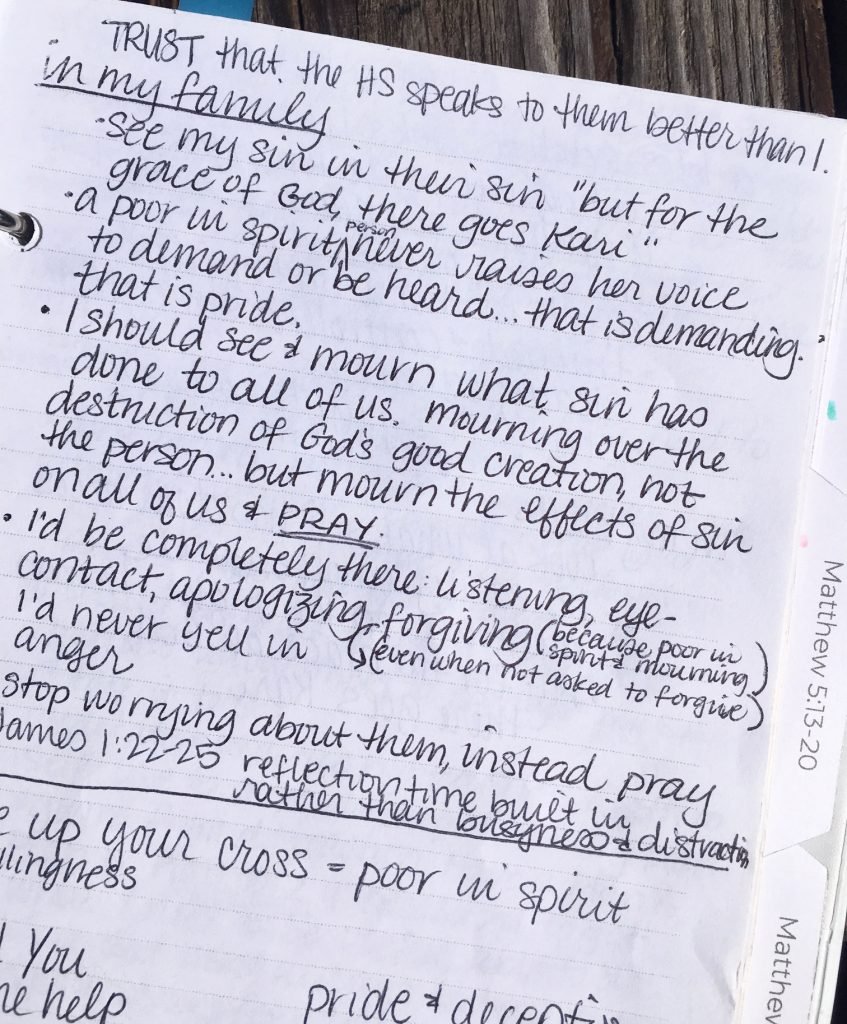 TRUST that the HS speaks to them better than I.
in my family
• see my sin in their sin "but for the
grace of God, there goes Kari"
• a poor in spirit person never raises her voice
to demand or be heard... that is demanding.
that is pride.
• I should see & mourn what sin has
done to all of us. mourning over the
destruction of God's good creation, not
the person.. but mourn the effects of sin
on all of us & PRAY.
• I'd be completely there: listening, eye-
contact, apologizing, forgiving (because poor in
spirit & mourning)
(even when not asked to forgive)
I'd never yell in
anger
stop worrying about them, instead pray
James 1:22-25 reflection time built in
rather than busyness & distraction
e up your cross = poor in spirit
illingness
You
he help
pride & decepti
Matthew 5:13-20
Matthew